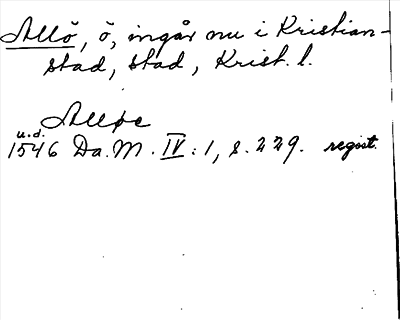 Allö, ö, ingår nu i Kristian-
stad, stad, Krist. l.
Alløe
u.d.
1546 Da. M. IV: 1, s. 229. regist.